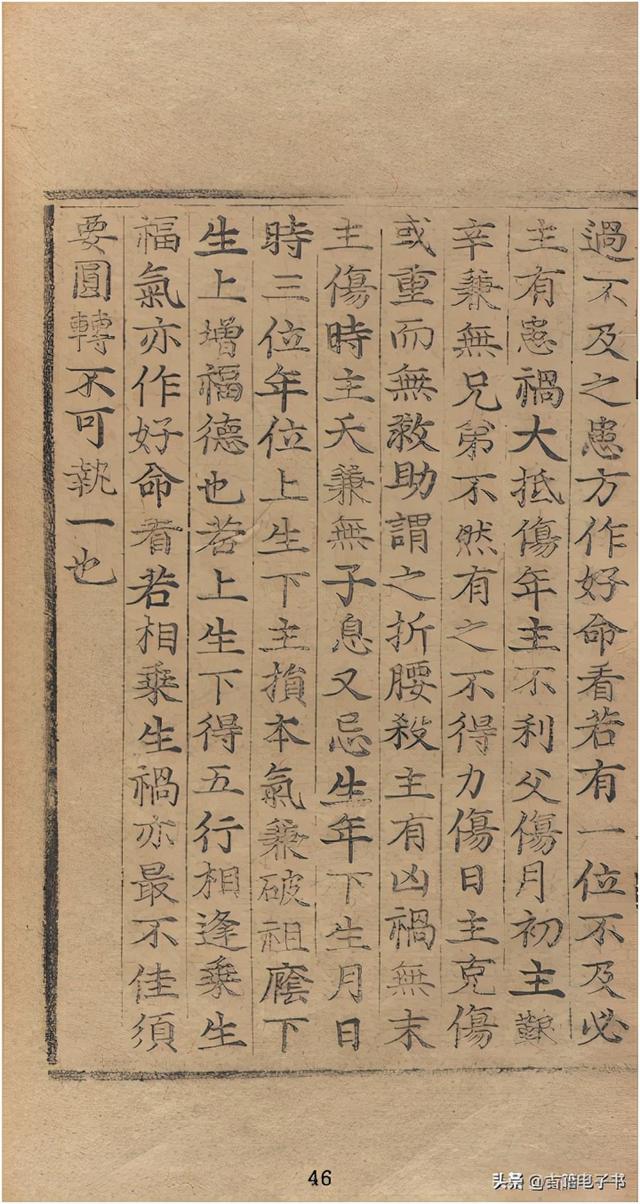 過不及之患方作好命看若有一位不及必
主有患禍大抵傷年主不利父傷月初主艱
辛兼無兄弟不然有之不得力傷日主克傷
或重而無救助謂之折腰殺主有凶禍無末
主傷時主夭兼無子息又忌生年下生月日
時三位年位上生下主損本氣兼破祖廕下
生上增福德也若上生下得五行相逢乘生
福氣亦作好命看若相乘生禍亦最不佳須
要圓轉不可執一也
46
头条 @古籍电子书